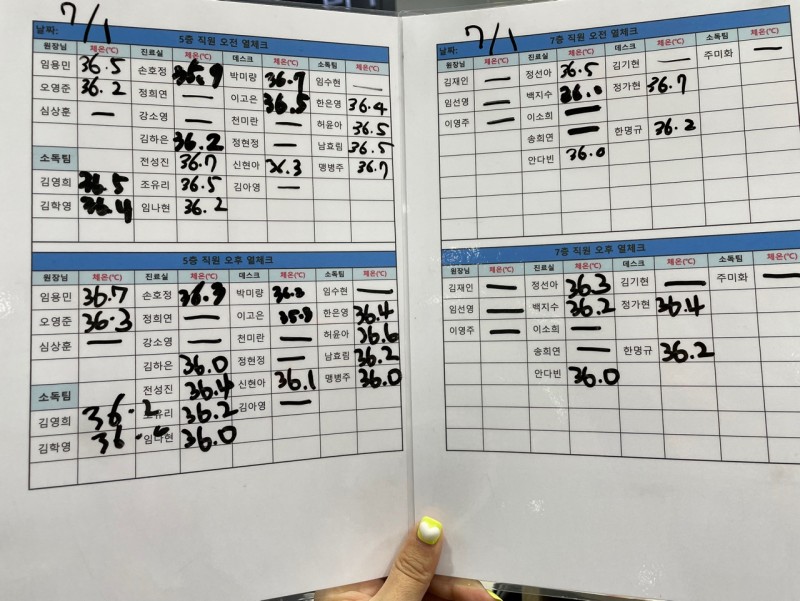 날짜: 7/1
5층 직원 오전 열체크
원장님 체온(℃) 진료실 체온(℃) 데스크 체온(℃) 소독팀 체온(℃)
임용민 36.5 손호정 박미량 36.7 임수현 —
오영준 36.2 정희연 — 이고은 36.5 한은영 36.4
심상훈 — 강소영 — 천미란 — 허윤아 36.5
김하은 36.2 정현정 — 남효림 36.5
소독팀 전성진 36.7 신현아 36.3 맹병주 36.7
김영희 36.5 조유리 36.5 김아영 —
김학영 36.4 임나현 36.2
5층 직원 오후 열체크
원장님 체온(℃) 진료실 체온(℃) 데스크 체온(℃) 소독팀 체온(℃)
임용민 36.7 손호정 박미량 임수현 —
오영준 36.3 정희연 — 이고은 한은영 36.4
심상훈 — 강소영 — 천미란 — 허윤아 36.6
김하은 36.0 정현정 — 남효림 36.2
소독팀 전성진 36.4 신현아 36.1 맹병주 36.0
김영희 36.2 조유리 36.2 김아영 —
김학영 임나현 36.0
날짜: 7/1
7층 직원 오전 열체크
원장님 체온(℃) 진료실 체온(℃) 데스크 체온(℃) 소독팀 체온(℃)
김재인 — 정선아 36.5 김기현 — 주미화 —
임선영 — 백지수 36.0 정가현 36.7
이영주 — 이소희 —
송희연 — 한명규 36.2
안다빈 36.0
7층 직원 오후 열체크
원장님 체온(℃) 진료실 체온(℃) 데스크 체온(℃) 소독팀 체온(℃)
김재인 — 정선아 36.3 김기현 — 주미화 —
임선영 — 백지수 36.2 정가현 36.4
이영주 — 이소희 —
송희연 — 한명규 36.2
안다빈 36.0